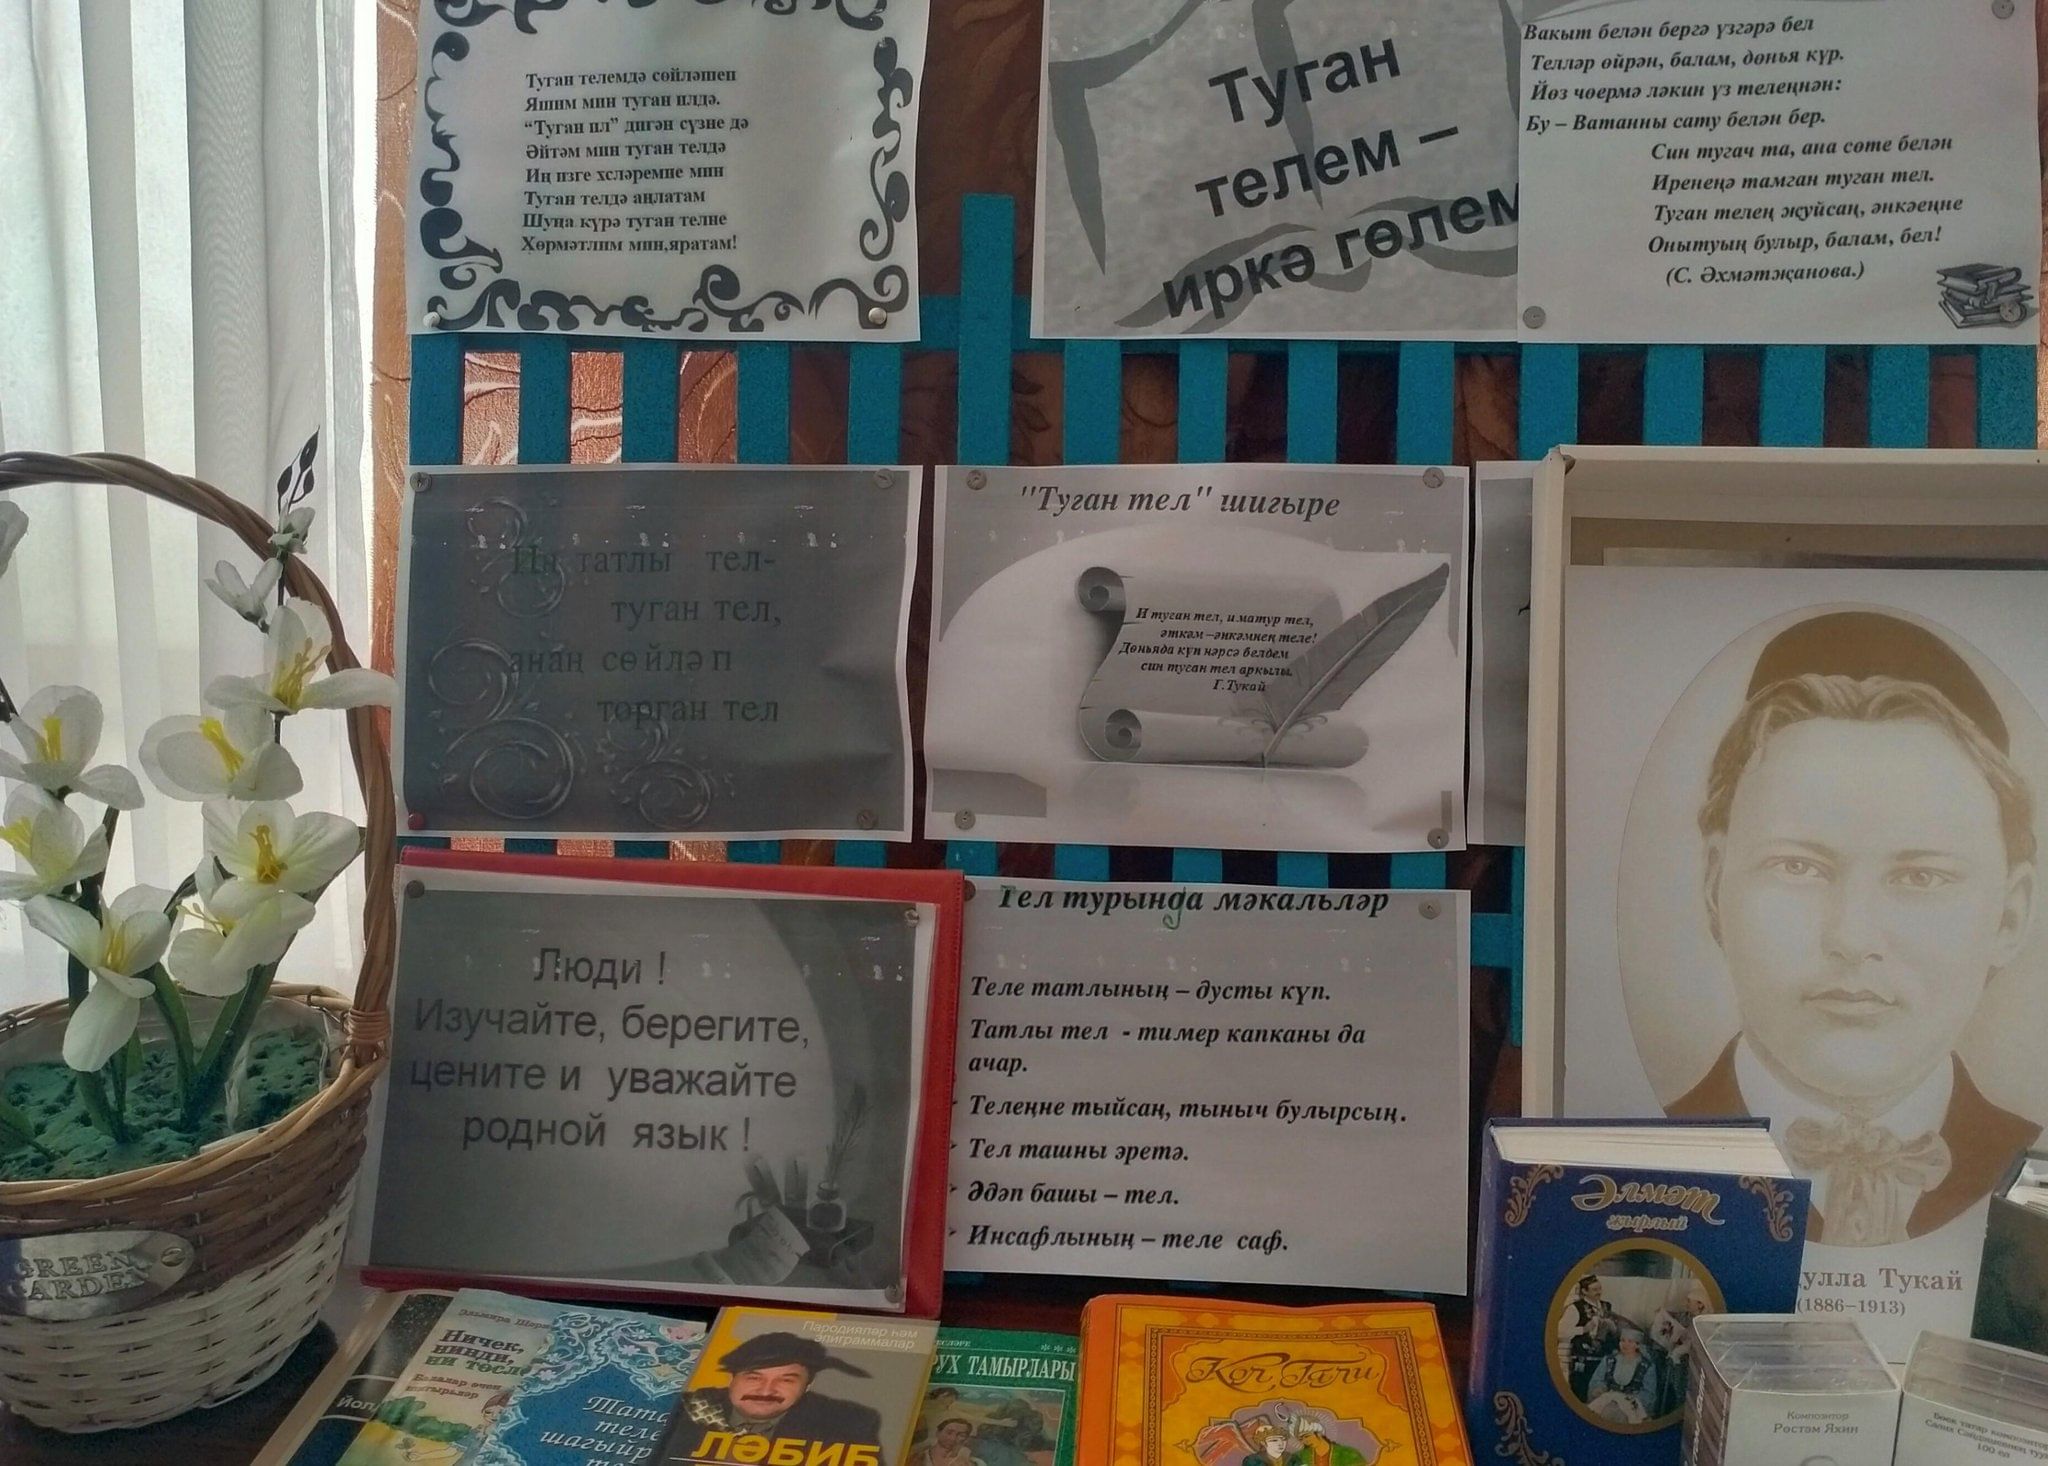 Туган телемдә сөйләшеп
Яшим мин туган илдә.
“Туган ил” дигән сүзне дә
Әйтәм мин туган телдә
Иң изге хсләремне мин
Туган телдә аңлатам
Шуңа күрә туган телне
Хөрмәтлим мин,яратам!
Туган
телем –
иркә гөлем
Вакыт белән бергә үзгәрә бел
Телләр өйрән, балам, дөнья күр.
Йөз чөермә ләкин үз телеңнән:
Бу – Ватанны сату белән бер.
Син тугач та, ана сөте белән
Иренеңә тамган туган тел.
Туган телең җуйсаң, әнкәеңне
Онытуың булыр, балам, бел!
(С. Әхмәтҗанова.)
Иң татлы тел-
туган тел,
анаң сөйләп
торган тел
"Туган тел" шигыре
И туган тел, и матур тел,
әткәм –әнкәмнең теле!
Дөньяда күп нәрсә белдем
син туган тел аркылы.
Г.Тукай
Люди !
Изучайте, берегите,
цените и уважайте
родной язык !
Тел турында мәкальләр
Теле татлының – дусты күп.
Татлы тел - тимер капканы да
ачар.
Телеңне тыйсаң, тыныч булырсың.
Тел ташны эретә.
Әдәп башы – тел.
Инсафлының – теле саф.
GREEN
GARDEN
Әлмәт
җырлый
улла Тукай
(1886–1913)
Эльмира
Ничек,
нинди,
ни төсле
Балалар өчен
шигырьләр
Пародияләр һәм
эпиграммалар
ЛӘБИБ
РУХ ТАМЫРЛАРЫ
Композитор
Рөстәм Яхин
Бөек татар композиторы
Салих Сәйдәшевнең
100 ел